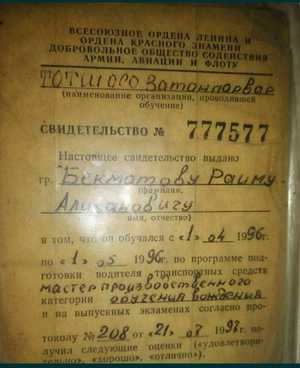 ВСЕСОЮЗНОЕ ОРДЕНА ЛЕНИНА И
ОРДЕНА КРАСНОГО ЗНАМЕНИ
ДОБРОВОЛЬНОЕ ОБЩЕСТВО СОДЕЙСТВИЯ
АРМИИ, АВИАЦИИ И ФЛОТУ
(наименование организации, проводившей
обучение)
СВИДЕТЕЛЬСТВО № 777577
Настоящее свидетельство выдано
гр. Бекматову Раиму
(фамилия,
Алихановичу
имя, отчество)
в том, что он обучался с «1» 04 1996г.
по «1» 05 1996г. по программе под-
готовки водителя транспортных средств
мастер производственного
категории обучения вождения
и на выпускных экзаменах согласно про-
токолу № 208 от «21» 07 199 г. по-
лучил следующие оценки («удовлетвори-
тельно», «хорошо», «отлично»).